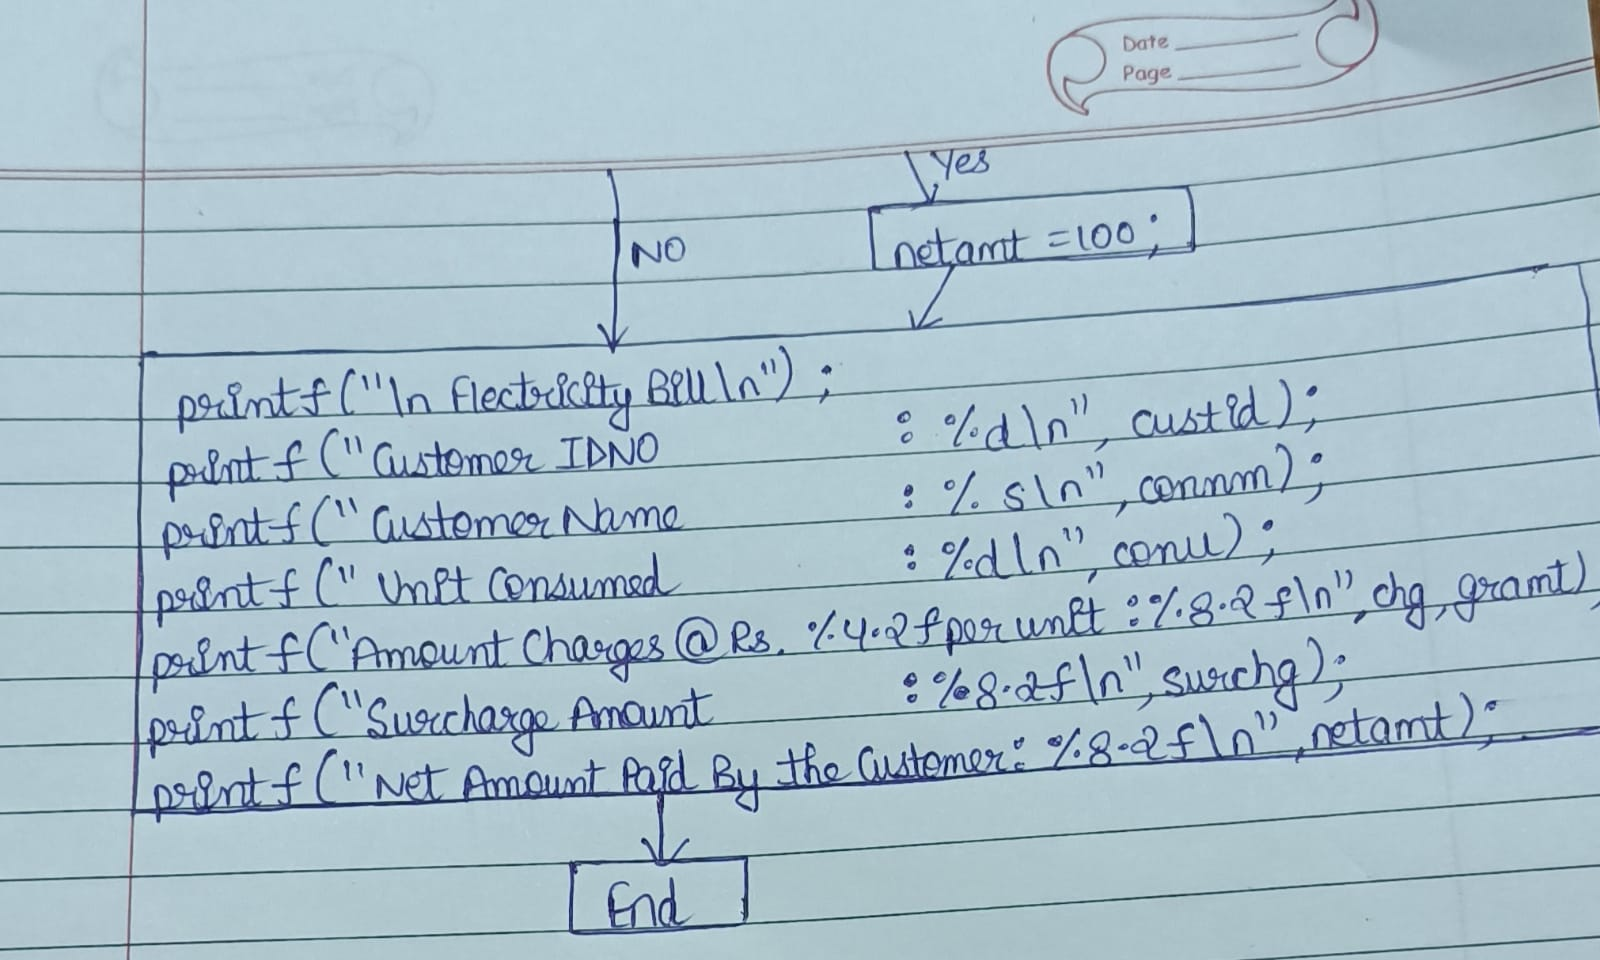 Date
Page
Yes
NO
netamt = 100;
printf("\n Electricity Bill\n");
printf("Customer IDNO : %d\n", custid);
printf("Customer Name : %s\n", connm);
printf("Unit Consumed : %d\n", conu);
printf("Amount Charges @Rs. %4.2f per unit : %8.2f\n", chg, gramt)
printf("Surcharge Amount : %8.2f\n", surchg);
printf("Net Amount Paid By the Customer: %8.2f\n", netamt);
End